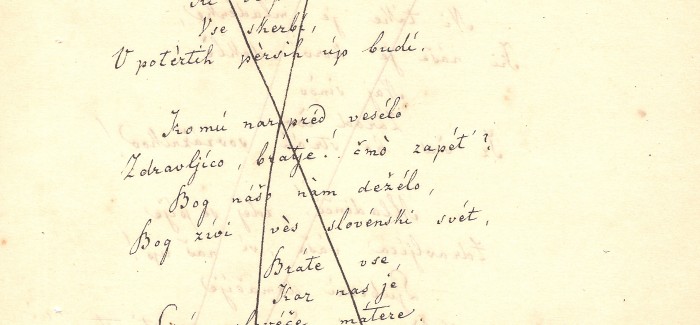 Vse skerbí,
V potèrtih pèrsih úp budí.
Komú narpréd vesélo
Zdravljíco, bratje! čmò zapét'?
Bog nášo nàm deželo,
Bog živi vès slovénski svét,
Bráte vse
Kar nas je
máтere.